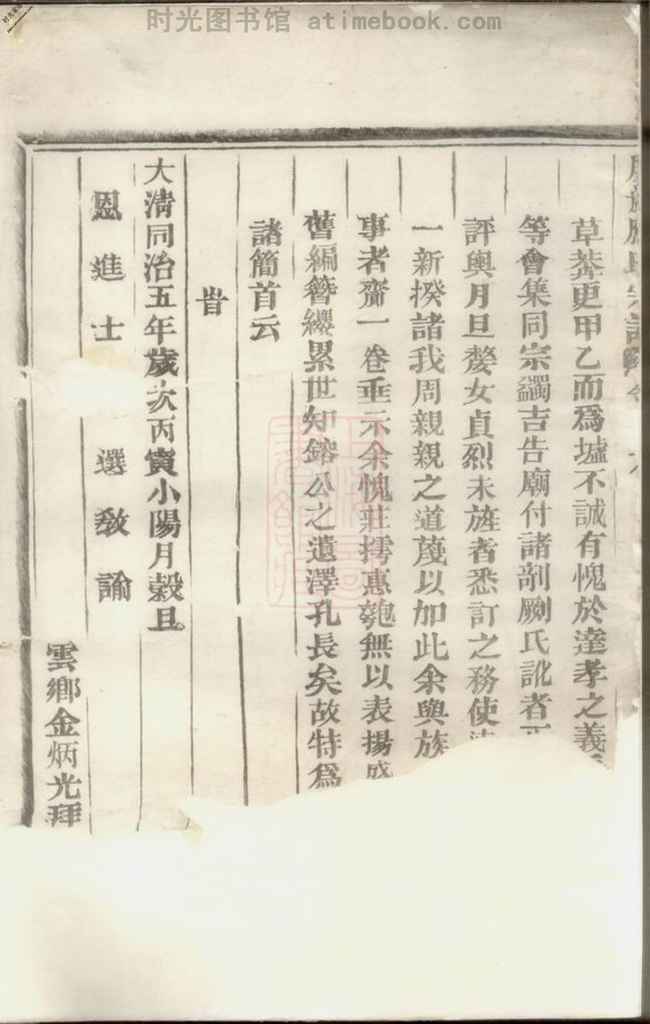 时光图书馆 atimebook.com
草莽更甲乙而爲墟不誠有愧於達孝之義
等會集同宗蠲吉告廟付諸剞劂氏訛者正
評與月旦嫠女貞烈未旌者悉訂之務使
一新揆諸我周親親之道蔑以加此余與族
事者齎一卷垂示余愧莊摴惠匏無以表揚盛
舊編簪纓累世知鎔公之遺澤孔長矣故特爲
諸簡首云
旹
大清同治五年歲次丙寅小陽月穀旦
恩進士 選教諭
雲鄉金炳光拜